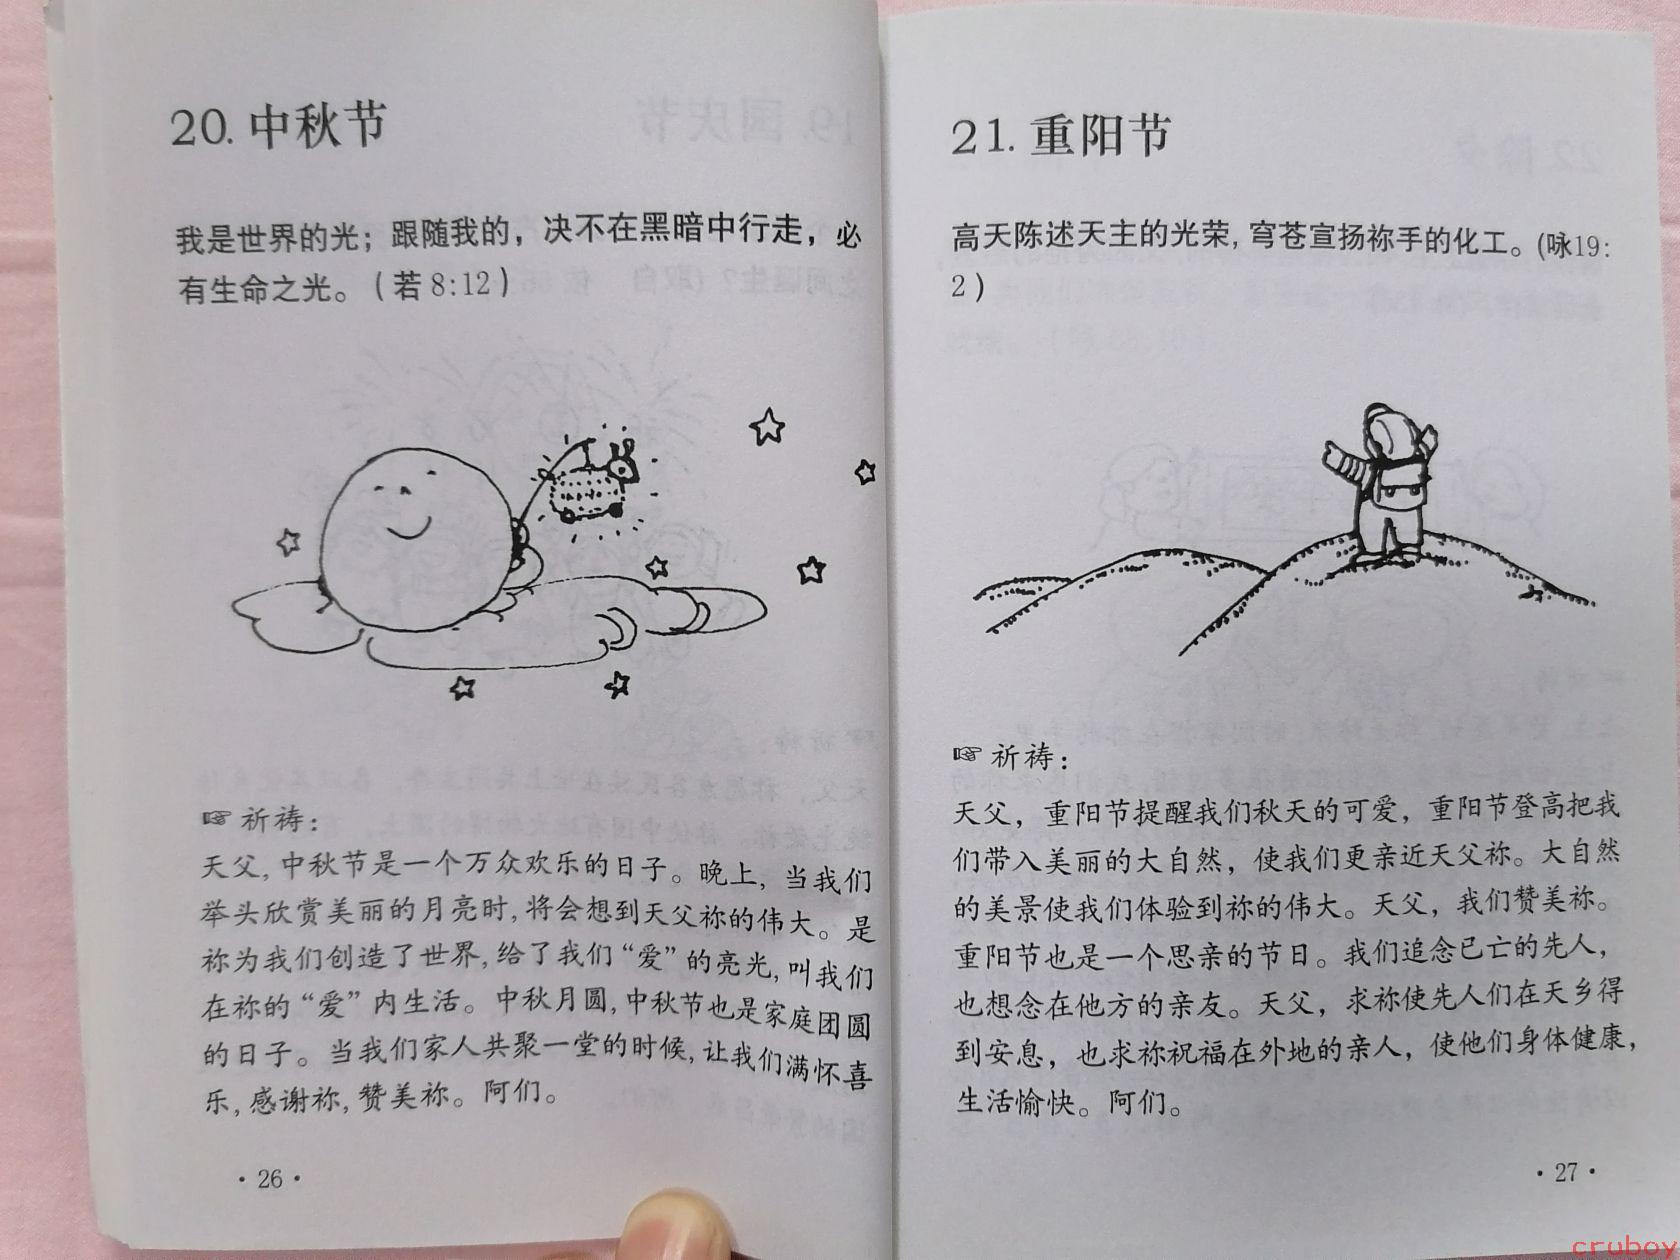 20. 中秋节
我是世界的光；跟随我的，决不在黑暗中行走，必
有生命之光。（若 8:12）
☞ 祈祷：
天父，中秋节是一个万众欢乐的日子。晚上，当我们
举头欣赏美丽的月亮时，将会想到天父祢的伟大。是
祢为我们创造了世界，给了我们“爱”的亮光，叫我们
在祢的“爱”内生活。中秋月圆，中秋节也是家庭团圆
的日子。当我们家人共聚一堂的时候，让我们满怀喜
乐，感谢祢，赞美祢。阿们。
·26·
21. 重阳节
高天陈述天主的光荣，穹苍宣扬祢手的化工。(咏19:
2）
☞ 祈祷：
天父，重阳节提醒我们秋天的可爱，重阳节登高把我
们带入美丽的大自然，使我们更亲近天父祢。大自然
的美景使我们体验到祢的伟大。天父，我们赞美祢。
重阳节也是一个思亲的节日。我们追念已亡的先人，
也想念在他方的亲友。天父，求祢使先人们在天乡得
到安息，也求祢祝福在外地的亲人，使他们身体健康，
生活愉快。阿们。
·27·
cruboy